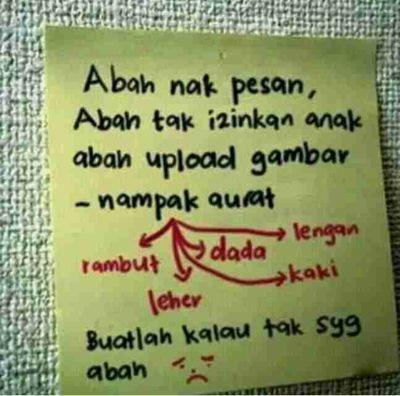 Abah nak pesan,
Abah tak izinkan anak
abah upload gambar
- nampak aurat
lengan
dada
rambut
kaki
leher
Buatlah kalau tak syg
abah